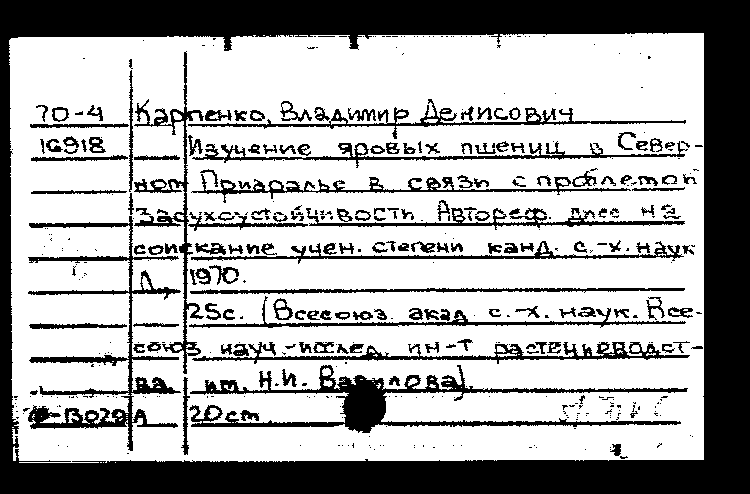 70-4 Карпенко, Владимир Денисович
16918 Изучение яровых пшениц в Север-
ном Приаралье в связи с проблемой
засухоустойчивости. Автореф. дисс на
соискание учен. степени канд. с.-х. наук
Л., 1970.
25с. (Всесоюз акад с.-х. наук. Все-
союз науч.-исслед. ин-т растениеводст-
ва. им. Н.И. Вавилова).
20 cm